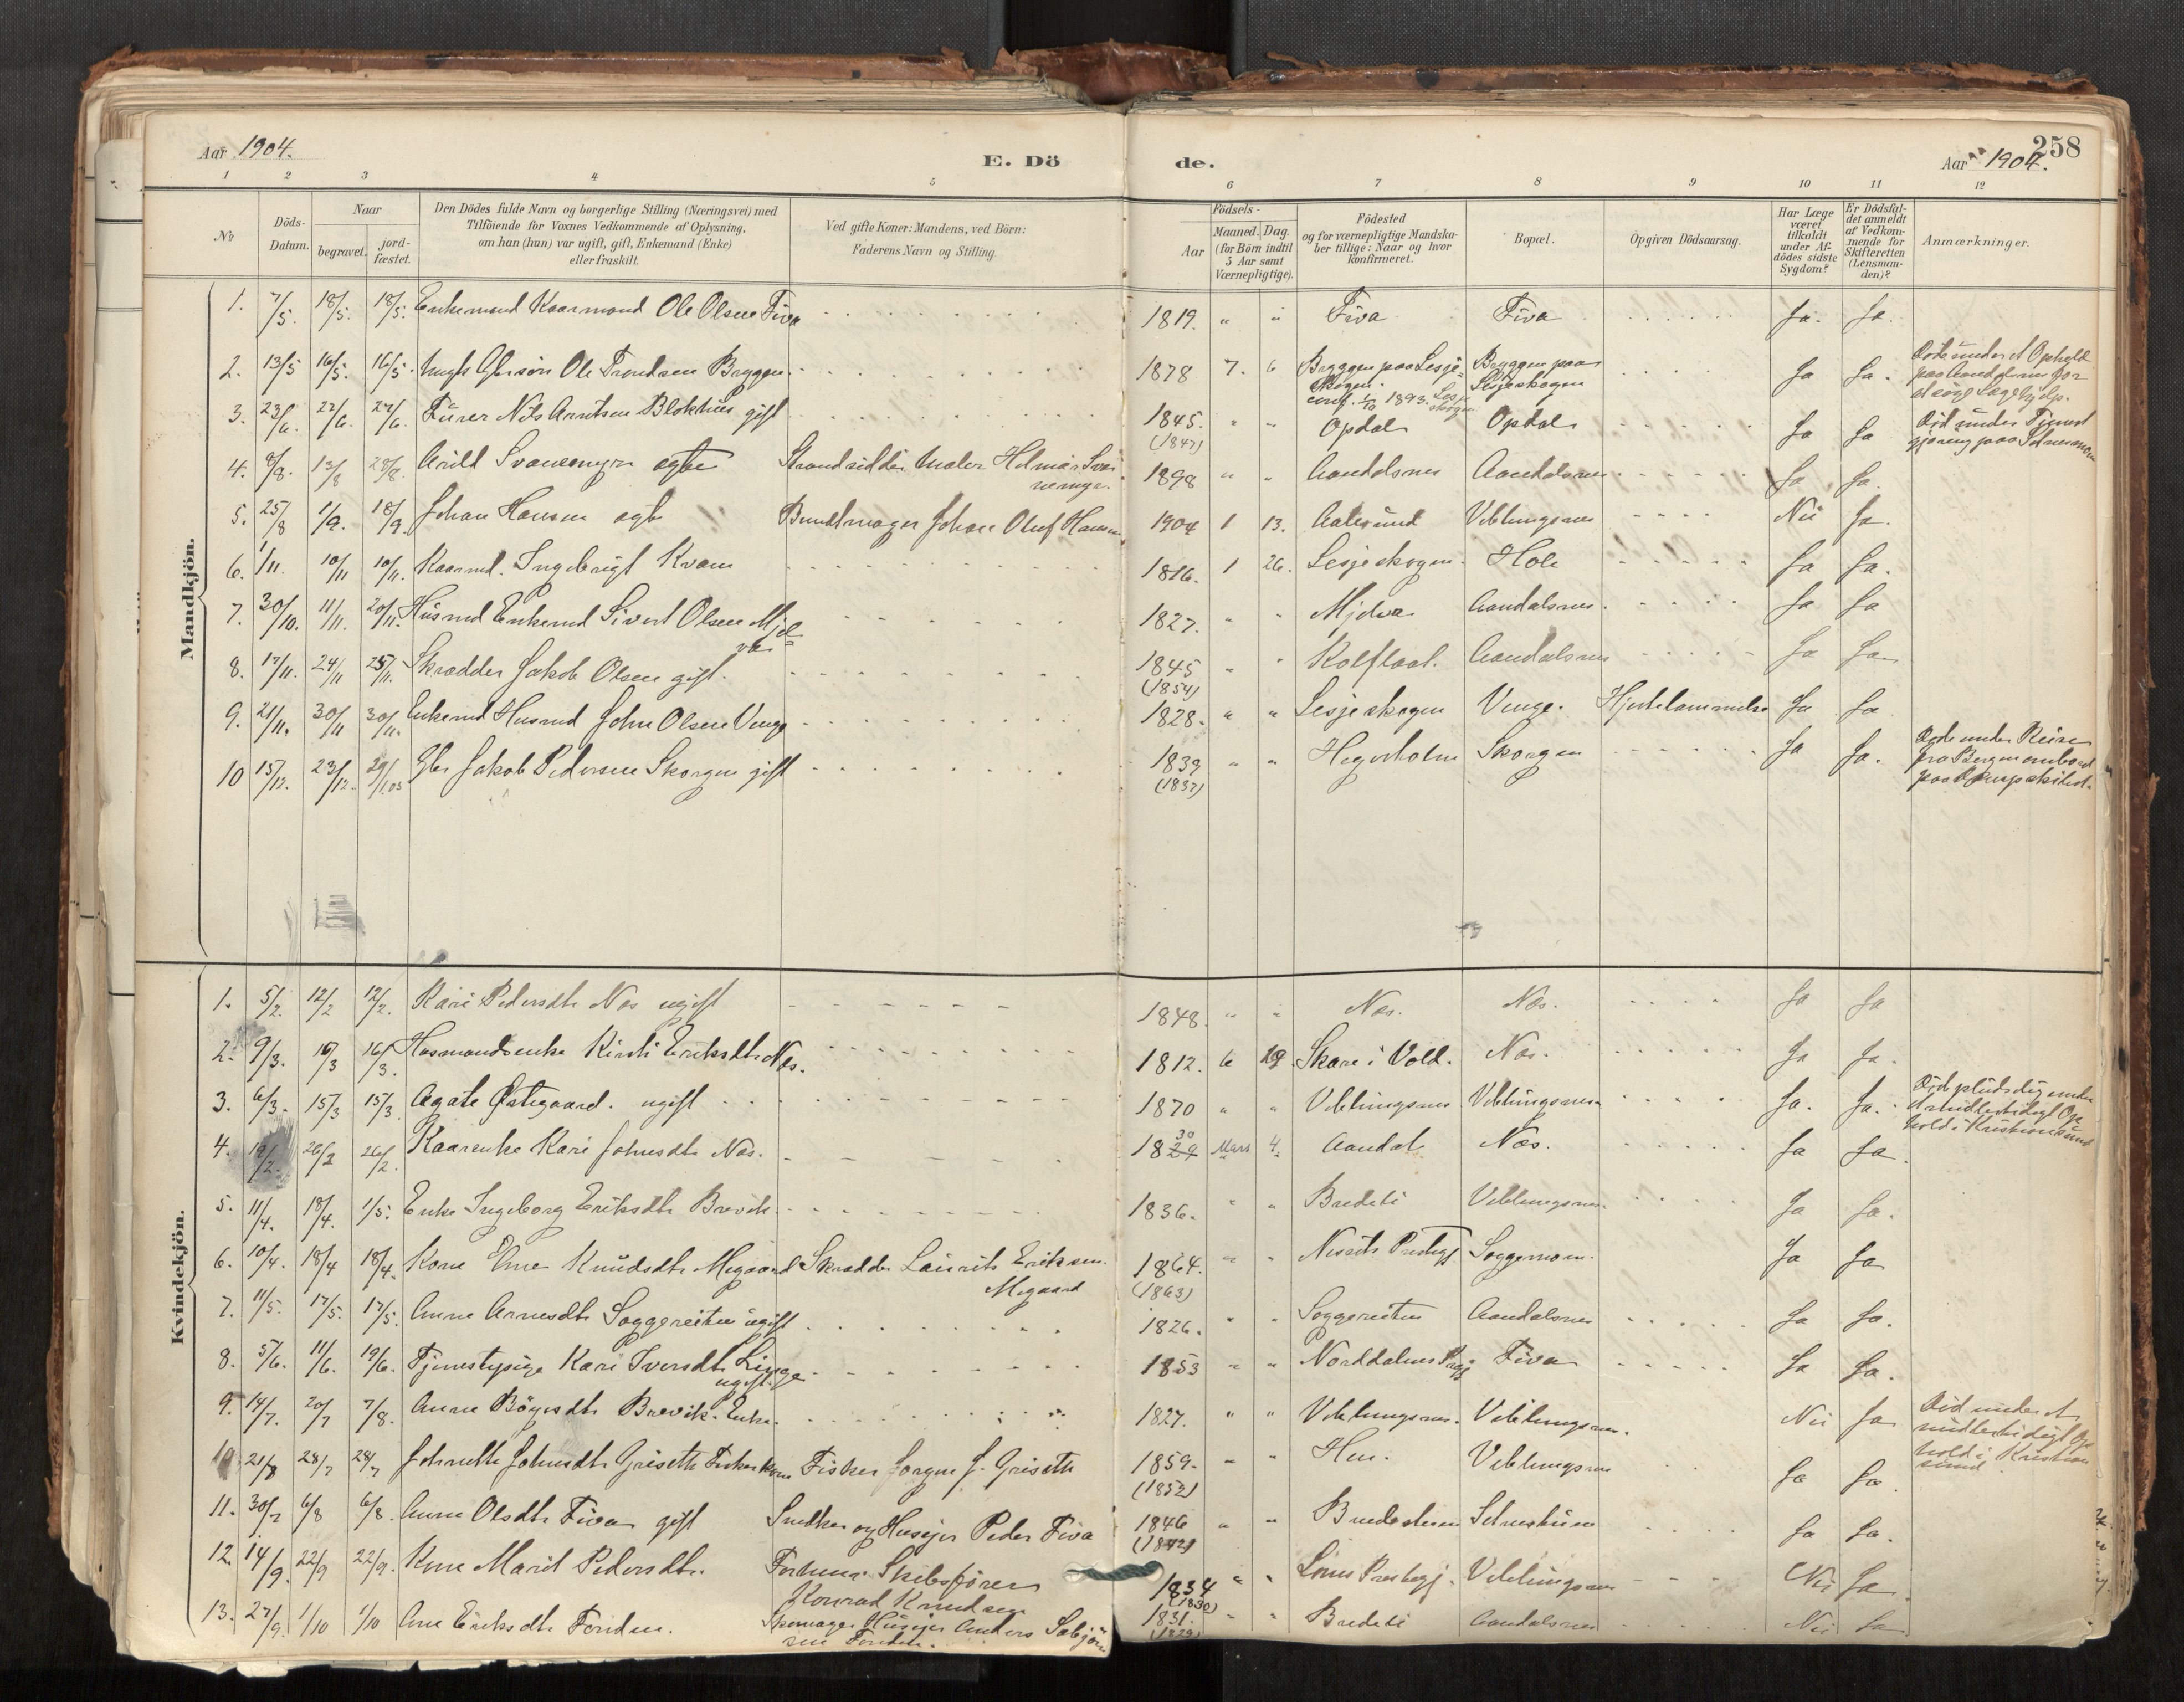 Aar 1904.
E. Dö
de.
Aar 1904.
258
1 2 3 4 5 6 7 8 9 10 11 12
No
Döds-
Datum.
Naar
begravet.
jord-
fæstet.
Den Dödes fulde Navn og borgerlige Stilling (Næringsvei) med
Tilföiende for Voxnes Vedkommende af Oplysning,
om han (hun) var ugift, gift, Enkemand (Enke)
eller fraskilt.
Ved gifte Koner: Mandens, ved Börn:
Faderens Navn og Stilling.
Födsels-
Aar
Maaned. Dag.
(for Börn indtil
5 Aar samt
Værnepligtige).
Födested
og for værnepligtige Mandska-
ber tillige: Naar og hvor
konfirmeret.
Bopæl.
Opgiven Dödsaarsag.
Har Læge
været
tilkaldt
under Af-
dödes sidste
Sygdom?
Er Dödsfal-
det anmeldt
af Vedkom-
mende for
Skifteretten
(Lensman-
den)?
Anmærkninger.
Mandkjön.
1. 7/5. 18/5. 18/5. Enkemand Kaarmand Ole Olsen Fiva 1819. " " Fiva Fiva Ja. Ja.
2. 13/5 16/5. 16/5. Ungk. Gbrsön Ole Trondsen Bryggen 1878 7. 6 Bryggen paa Lesje-
skogen.
conf. 1/10 1893. Lesje
skogen
Bryggen paa
Lesjeskogen Ja Ja. Döde under et Ophold
paa Aandalsnes for
at söge Lægehjælp.
3. 23/6. 27/6. 27/6. Fürer Nils Arntsen Blokhus gift 1845.
(1847) " " Opdal Opdal Ja Ja Död under Tjenest
gjöring paa Setnesmoen
4. 8/8. 13/8 28/8. Arild Svanemyr egte Strandsidder Maler Hilmar Sva
nemyr. 1898 " " Aandalsnes Aandalsnes Ja Ja.
5. 25/8 1/9. 18/9. Johan Hansen egte Bundtmager Johan Oluf Hansen 1904 1 13. Aalesund Veblungsnes Nei Ja.
6. 1/11. 10/11 10/11. Kaarmd. Ingebrigt Kvam 1816. 1 26. Lesjeskogen. Hole Ja Ja.
7. 30/10. 11/11. 20/11. Husmd Enkemd Sivert Olsen Mjel-
va 1827. " " Mjelva Aandalsnes. Ja Ja
8. 17/11. 24/11 25/11. Skrædder Jakob Olsen gift. 1845
(1854) " " Kolflaat. Aandalsnes Ja Ja
9. 21/11. 30/11 30/11. Enkemd Husmd John Olsen Venge 1828. " " Lesjeskogen Venge. Hjertelammelse Ja Ja
10 15/12. 23/12. 29/1.05 Gbr Jakob Pedersen Skorgen gift 1839
(1837) " " Hegerholm Skorgen Ja Ja. Döde under Reise
fra Bergen ombord
paa
Kvindekjön.
1. 5/2. 12/2 12/2. Kari Pedersdtr Næs ugift 1848. " " Næs. Næs. Ja Ja
2. 9/3. 16/3 16/3. Husmandsenke Kirsti Eriksdtr Næs. 1812. 6 19. Skare i Vold. Næs. Ja Ja.
3. 6/3. 15/3 15/3 Agate Østigaard. ugift 1870 " " Veblungsnes Veblungsnes Ja. Ja. Döde pludselig under
et midlertidigt Op
hold i Kristiansund
4. 19/2. 26/2 26/2. Kaarenke Kari Johnsdtr Næs. 1829 30 Marts 4. Aandal Næs. Ja Ja.
5. 11/4. 18/4. 1/5. Enke Ingeborg Eriksdtr Brevik. 1836. " " Bredeli Veblungsnes. Ja Ja.
6. 10/4. 18/4 18/4. Kone Ane Knudsdtr Mogaard Skrædder Laurits Eriksen
Mogaard 1864.
(1863) " " Nesset Prestegj. Soggemoen. Ja Ja
7. 11/5. 17/5. 17/5. Anne Arnesdtr Soggereiten ugift 1826. " " Soggereiten Aandalsnes Ja Ja.
8. 5/6. 11/6. 19/6. Tjenestepige Kari Iversdtr Linge
ugift. 1853 " " Norddalens Prgj Fiva Ja Ja.
9. 14/7. 20/7 7/8. Anne Böyesdtr Brevik. Enke. 1827. " " Veblungsnes. Veblungsnes. Nei Ja Död under et
midlertidigt Op
hold i Kristian
sund
10 21/8 28/7 28/7 Johnette Johnsdtr Griseth Fiskerkone Fisker Jörgen J. Griseth 1859.
(1852) " " Hen. Veblungsnes Ja Ja.
11. 30/7. 6/8 6/8. Anne Olsdtr Fiva gift Snedker og Huseier Peder Fiva 1846
(1842) " " Bredesteen Setneshusene Ja Ja.
12. 14/9. 22/9 22/9. Kone Marit Pedersdtr. Forhenv. Skibsförer
Konrad Knudsen 1834
(1830) " " Loms Prestegj. Veblungsnes Nei Ja
13. 27/9. 1/10 1/10 Ane Eriksdtr Fonden. Skomager Huseier Anders Sæbjörn
sen Fonden. 1831.
(1829) " " Bredeli Aandalsnes Nei Ja